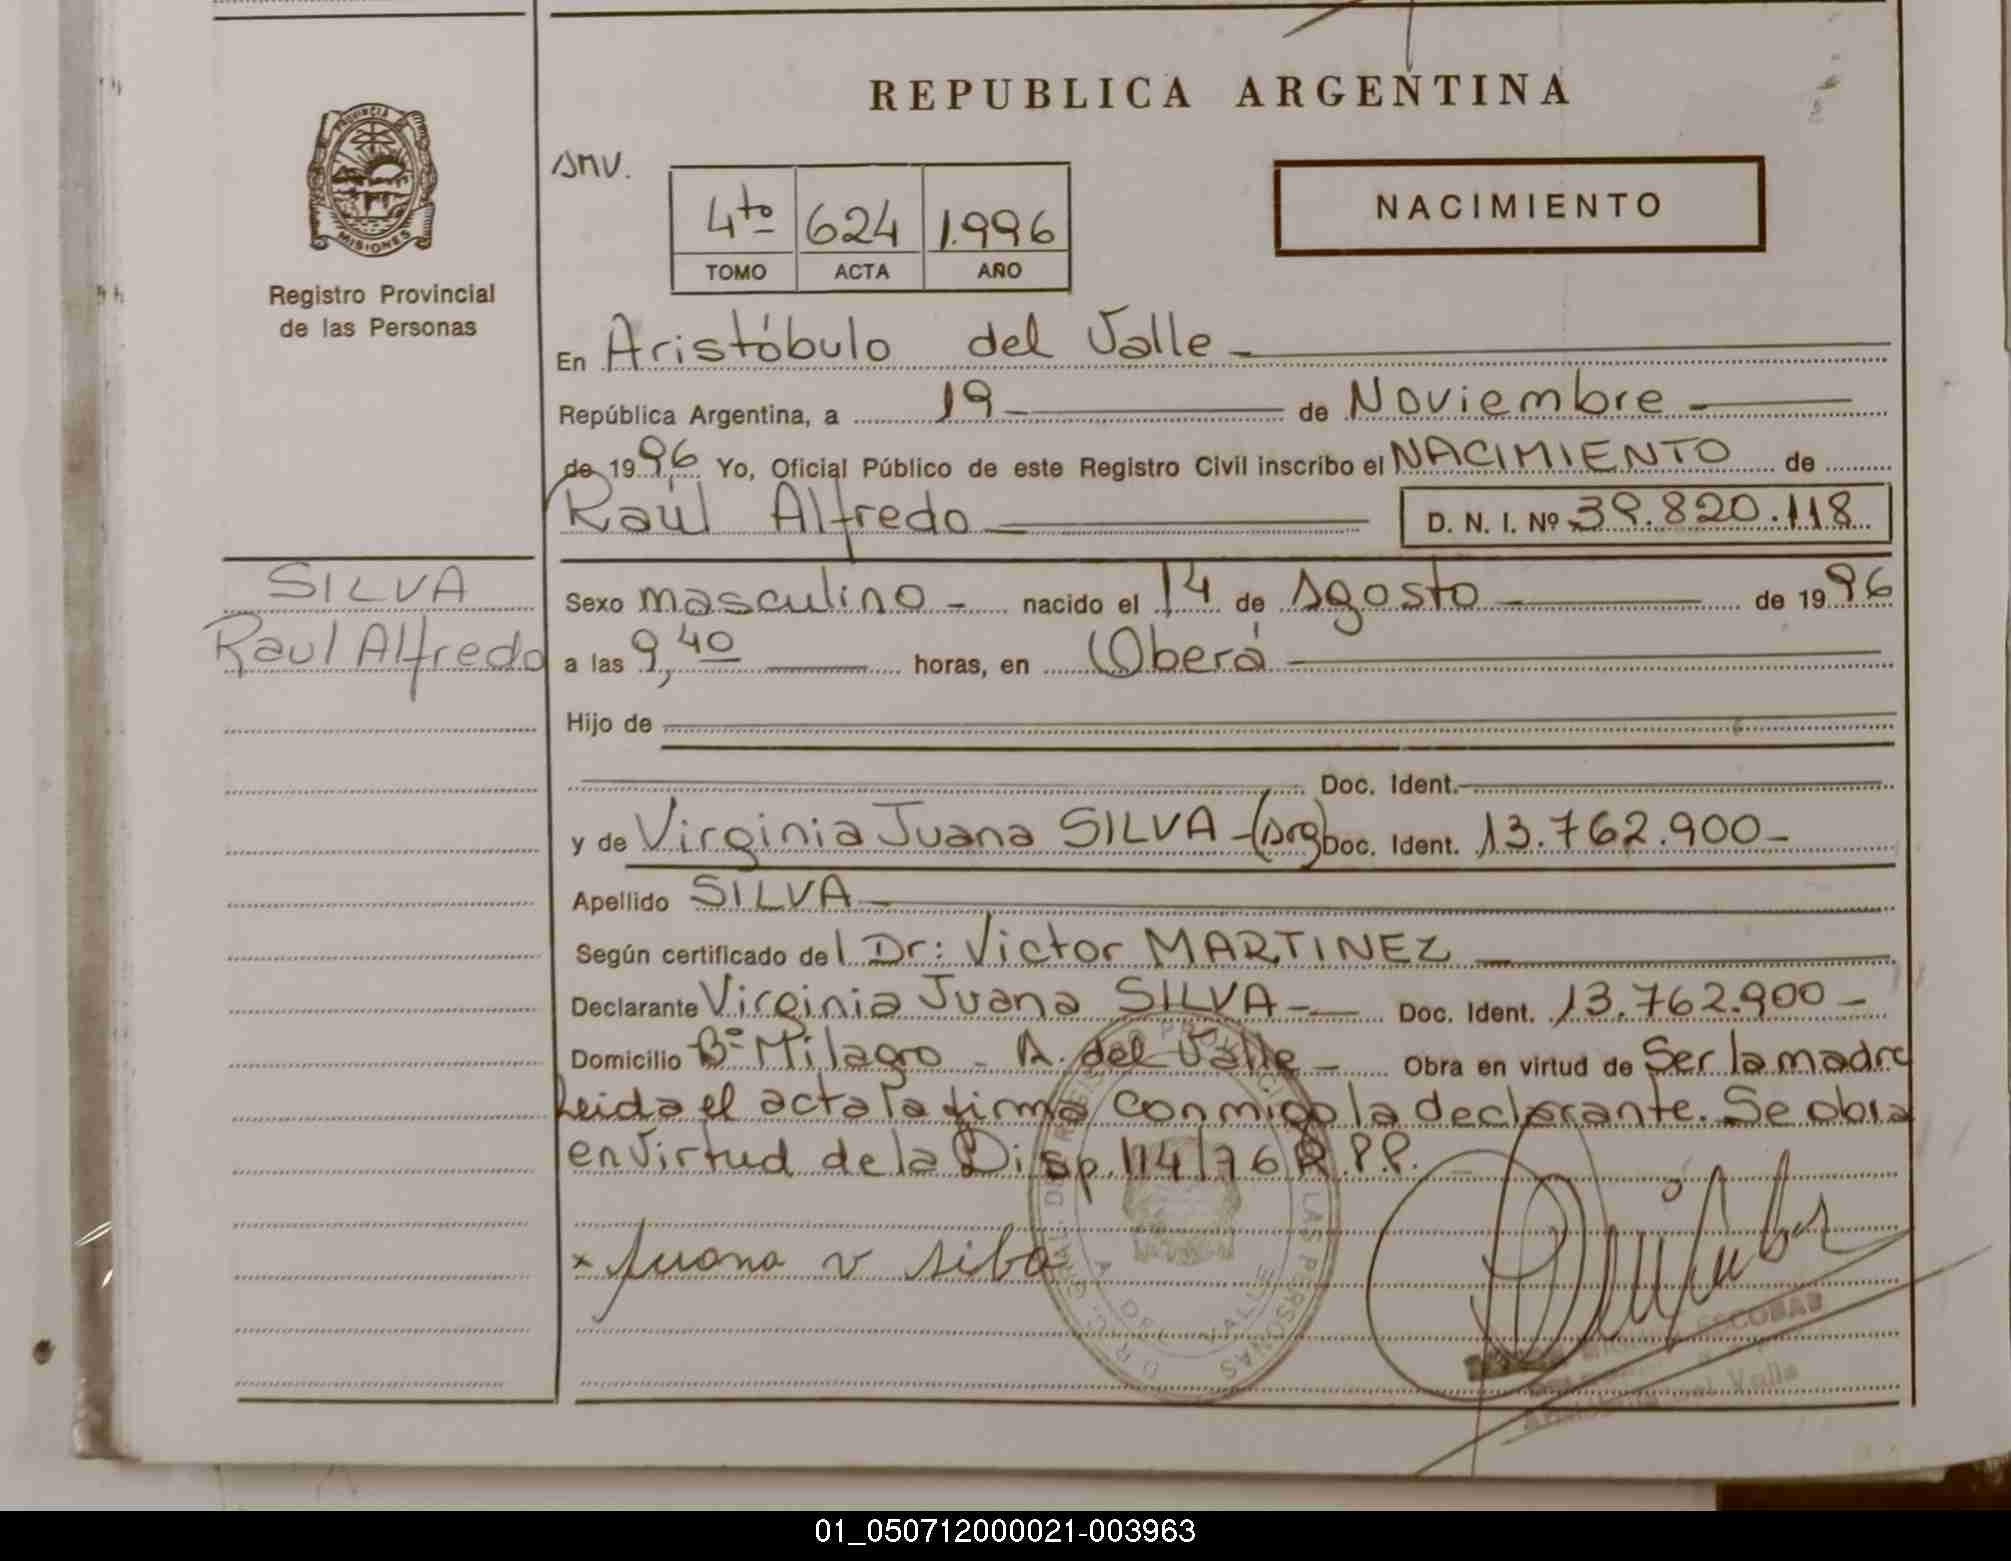 REPUBLICA ARGENTINA
PROVINCIA DE
MISIONES
Registro Provincial
de las Personas
SMV.
4to 624 1.996
TOMO ACTA AÑO
NACIMIENTO
En Aristóbulo del Valle
República Argentina, a 19 de Noviembre
de 1996 Yo, Oficial Público de este Registro Civil inscribo el NACIMIENTO de
Raúl Alfredo D. N. I. Nº 39.820.118
SILVA
Raul Alfredo
Sexo masculino nacido el 14 de Agosto de 1996
a las 9,40 horas, en Oberá
Hijo de
Doc. Ident.
y de Virginia Juana SILVA - (Arg) Doc. Ident. 13.762.900-
Apellido SILVA
Según certificado del Dr: Victor MARTINEZ
Declarante Virginia Juana SILVA - Doc. Ident. 13.762.900-
Domicilio Bº Milagro - A. del Valle - Obra en virtud de Ser la madre
Leida el acta la firma conmigo la declarante. Se obra
en virtud de la Disp. 114/76 R.P.P.
x Juana v silba
LAS PERSONAS
A. DEL VALLE
ESCOBAR
del Valle
01_050712000021-003963